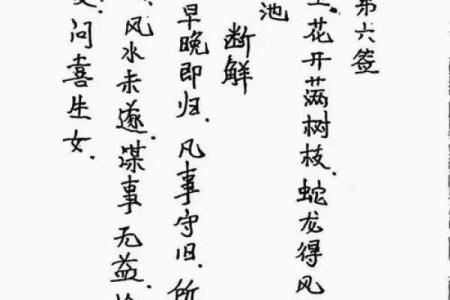 第六签
花开满树枝.蛇龙得风
池
断觧
早晚即归.凡事守旧.所
风水未遂.谋事无益.
问喜生女.